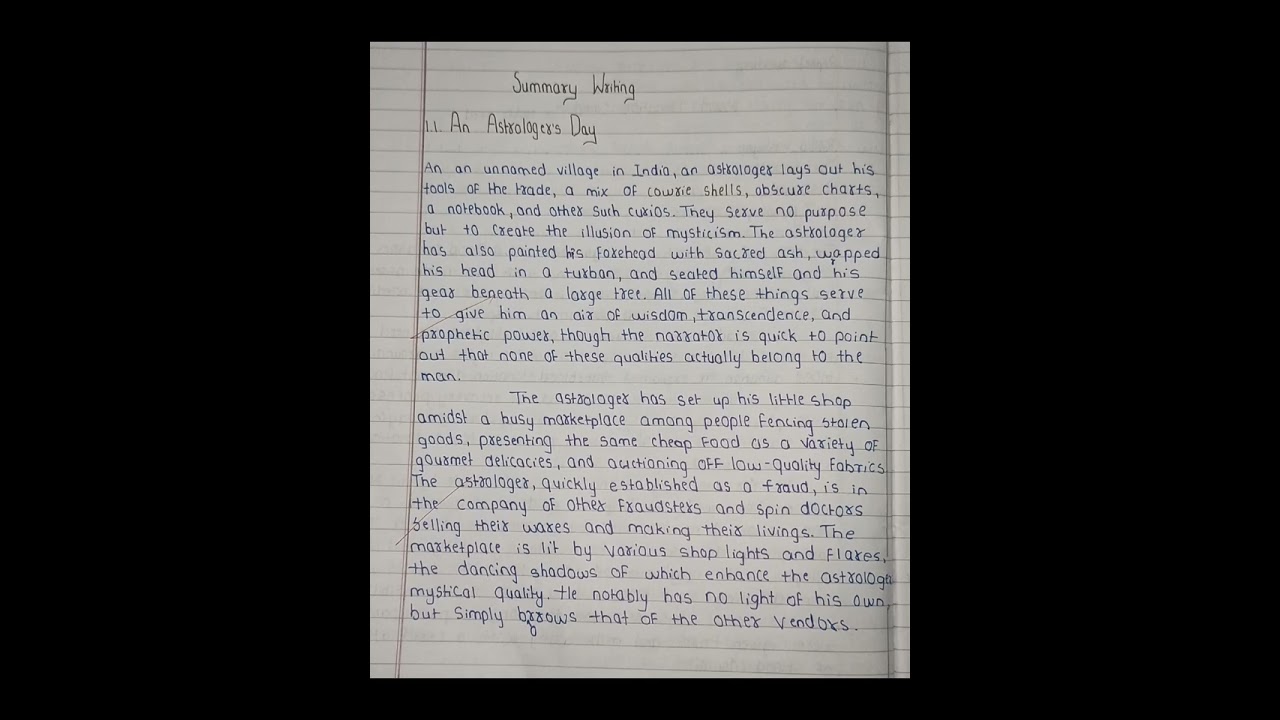 Summary Writing
1.1. An Astrologer's Day
An an unnamed village in India, an astrologer lays out his
tools of the trade, a mix of cowrie shells, obscure charts,
a notebook, and other such curios. They serve no purpose
but to create the illusion of mysticism. The astrologer
has also painted his forehead with sacred ash, wrapped
his head in a turban, and seated himself and his
gear beneath a large tree. All of these things serve
to give him an air of wisdom, transcendence, and
prophetic power, though the narrator is quick to point
out that none of these qualities actually belong to the
man.
The astrologer has set up his little shop
amidst a busy marketplace among people fencing stolen
goods, presenting the same cheap food as a variety of
gourmet delicacies, and auctioning off low-quality fabrics.
The astrologer, quickly established as a fraud, is in
the company of other fraudsters and spin doctors
selling their wares and making their livings. The
marketplace is lit by various shop lights and flares,
the dancing shadows of which enhance the astrologer
mystical quality. He notably has no light of his own,
but simply borrows that of the other vendors.